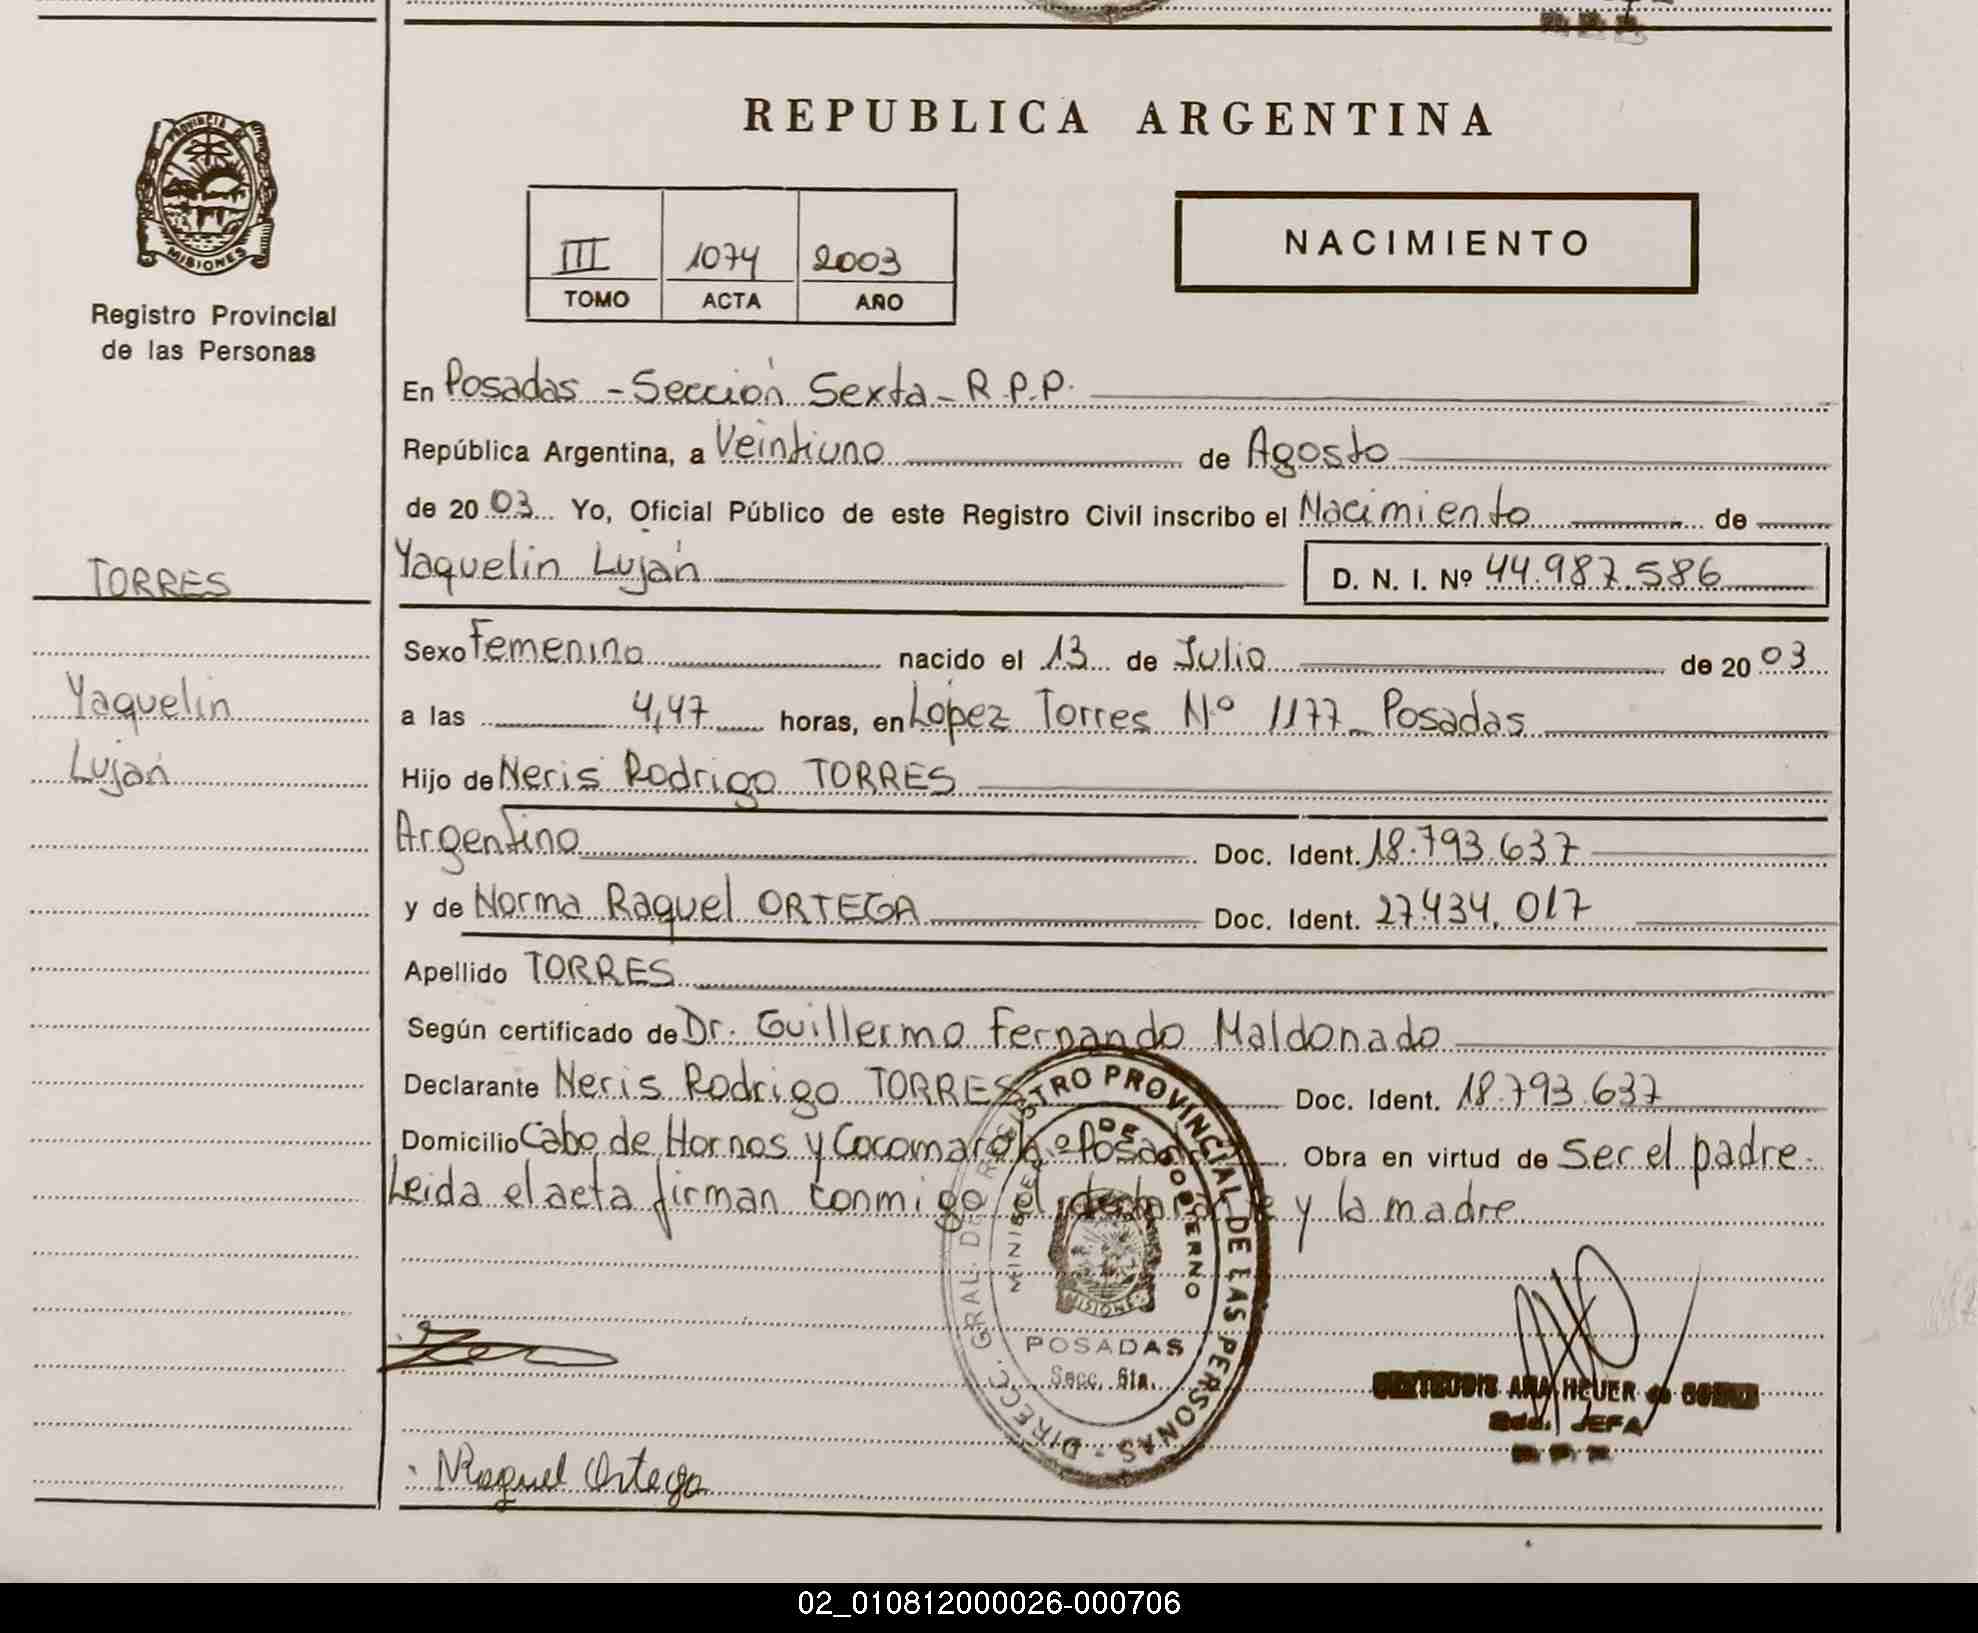 REPUBLICA ARGENTINA
PROVINCIA DE
MISIONES
Registro Provincial
de las Personas
III 1074 2003
TOMO ACTA AÑO
NACIMIENTO
En Posadas - Sección Sexta - R.P.P.
República Argentina, a Veintiuno de Agosto
de 2003 Yo, Oficial Público de este Registro Civil inscribo el Nacimiento de
Yaquelin Luján D. N. I. Nº 44.987.586
TORRES
Yaquelin
Luján
Sexo Femenino nacido el 13 de Julio de 2003
a las 4,47 horas, en López Torres Nº 1177 - Posadas
Hijo de Neris Rodrigo TORRES
Argentino Doc. Ident. 18.793.637
y de Norma Raquel ORTEGA Doc. Ident. 27.434.017
Apellido TORRES
Según certificado de Dr. Guillermo Fernando Maldonado
Declarante Neris Rodrigo TORRES Doc. Ident. 18.793.637
Domicilio Cabo de Hornos y Cocomarola - Posadas Obra en virtud de Ser el padre.
Leida el acta firman conmigo el declarante y la madre
DIRECC. GRAL. DE REGISTRO PROVINCIAL DE LAS PERSONAS
MINISTERIO DE GOBIERNO
MISIONES
POSADAS
Secc. 6ta.
ANA HEUER de
JEFA
Raquel Ortega
02_010812000026-000706